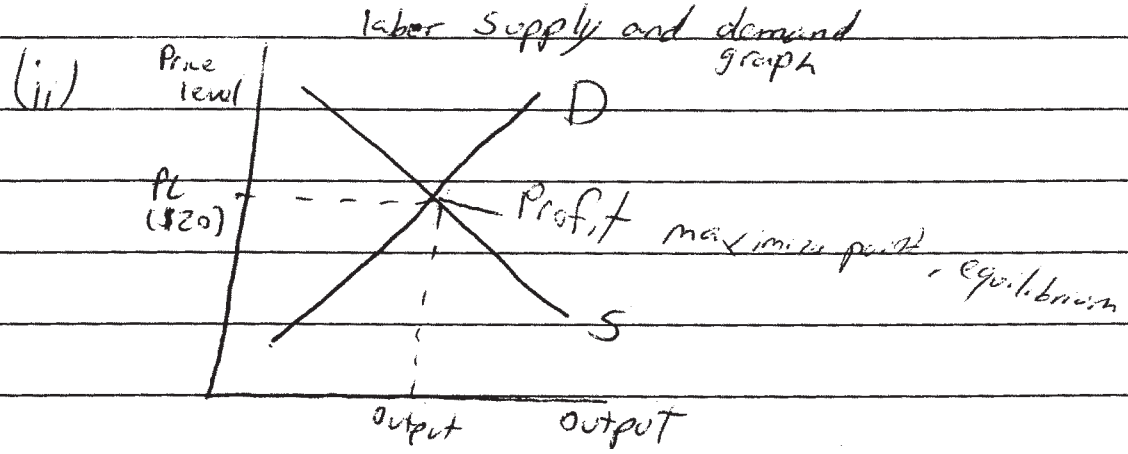 labor supply and demand
graph
(ii)
Price
level
D
PL
($20)
Profit maximize point, equilibrium
S
output
output